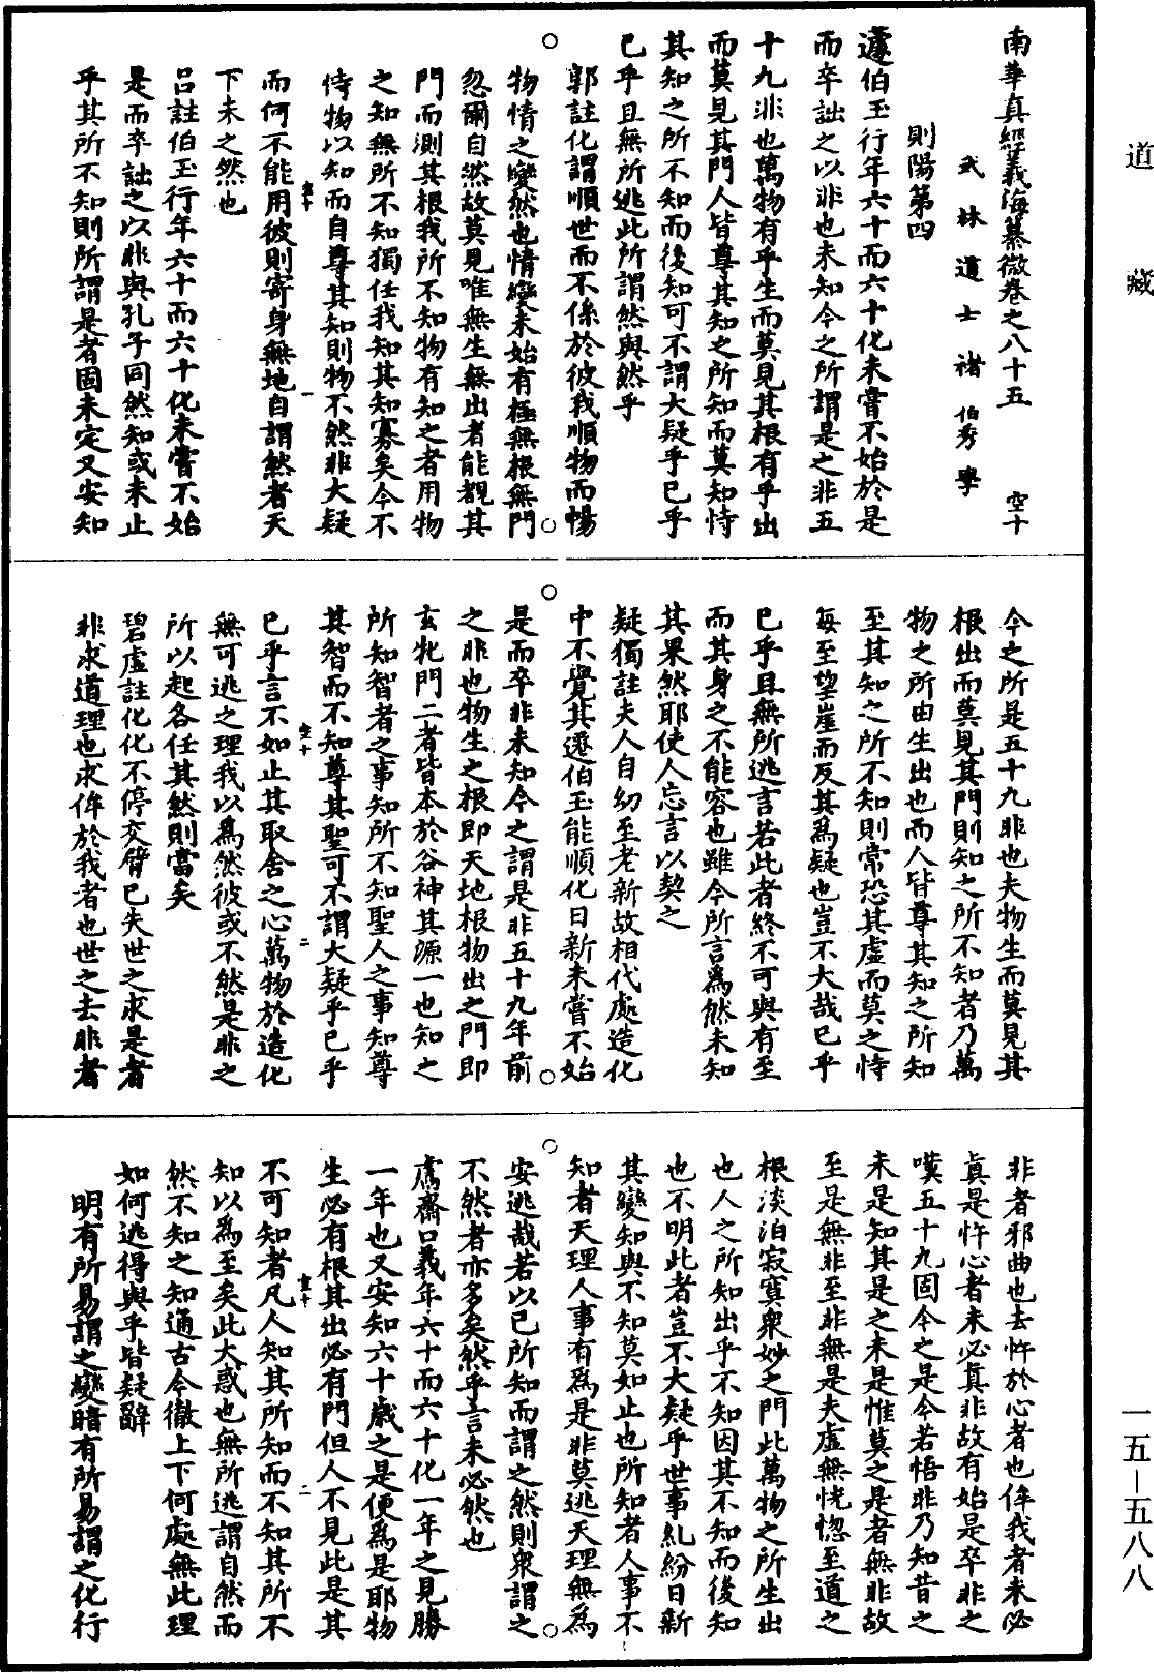 道藏
南華真經義海纂微卷之八十五 空十
武林道士褚伯秀學
則陽第四
蘧伯玉行年六十而六十化未嘗不始於是
而卒詘之以非也未知今之所謂是之非五
十九非也萬物有乎生而莫見其根有乎出
而莫見其門人皆尊其知之所知而莫知恃
其知之所不知而後知可不謂大疑乎已乎
已乎且無所逃此所謂然與然乎
郭註化謂順世而不係於彼我順物而暢
物情之變然也情變未始有極無根無門
忽爾自然故莫見唯無生無出者能覩其
門而測其根我所不知物有知之者用物
之知無所不知獨任我知其知寡矣今不
恃物以知而自尊其知則物不然非大疑
空十 一
而何不能用彼則寄身無地自謂然者天
下未之然也
呂註伯玉行年六十而六十化未嘗不始
是而卒詘之以非與孔子同然知或未止
乎其所不知則所謂是者固未定又安知
今之所是五十九非也夫物生而莫見其
根出而莫見其門則知之所不知者乃萬
物之所由生出也而人皆尊其知之所知
至其知之所不知則常恐其虛而莫之恃
每至望崖而反其為疑也豈不大哉已乎
已乎且無所逃言若此者終不可與有至
而其身之不能容也雖今所言為然未知
其果然耶使人忘言以契之
疑獨註夫人自幼至老新故相代處造化
中不覺其遷伯玉能順化日新未嘗不始
是而卒非未知今之謂是非五十九年前
之非也物生之根即天地根物出之門即
玄牝門二者皆本於谷神其源一也知之
所知智者之事知所不知聖人之事知尊
其智而不知尊其聖可不謂大疑乎已乎
空十 二
已乎言不如止其取舍之心萬物於造化
無可逃之理我以為然彼或不然是非之
所以起各任其然則當矣
碧虛註化化不停交臂已失世之求是者
非求道理也求侔於我者也世之去非者
非者邪曲也去忤於心者也侔我者未必
真是忤心者未必真非故有始是卒非之
嘆五十九固今之是今若悟非乃知昔之
未是知其是之未是惟莫之是者無非故
至是無非至非無是夫虛無恍惚至道之
根淡泊寂寞衆妙之門此萬物之所生出
也人之所知出乎不知因其不知而後知
也不明此者豈不大疑乎世事糺紛日新
其變知與不知莫如止也所知者人事不
知者天理人事有為是非莫逃天理無為
安逃哉若以已所知而謂之然則衆謂之
不然者亦多矣然乎言未必然也
鬳齋口義年六十而六十化一年之見勝
一年也又安知六十歲之是便為是耶物
生必有根其出必有門但人不見此是其
空十 二
不可知者凡人知其所知而不知其所不
知以為至矣此大惑也無所逃謂自然而
然不知之知通古今徹上下何處無此理
如何逃得與乎皆疑辭
明有所易謂之變暗有所易謂之化行
一五—五八八